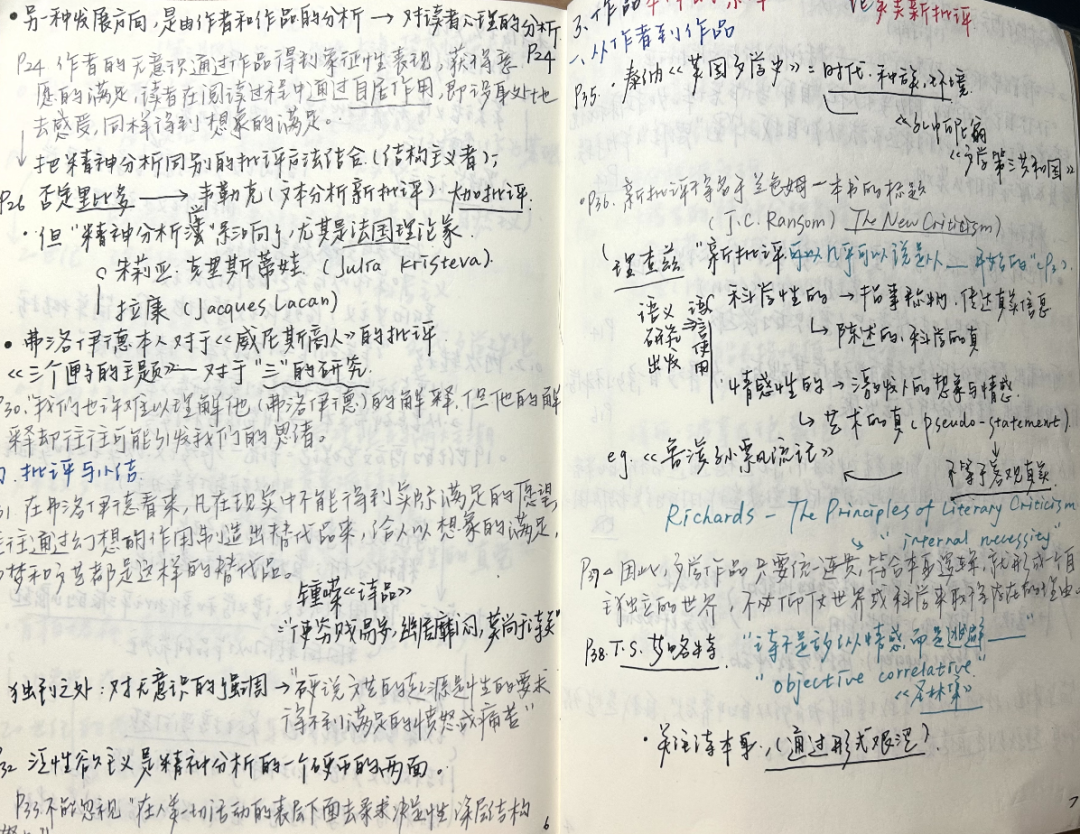 • 另一种发展方向，是由作者和作品的分析 → 对读者心理的分析. P24
P24 作者的无意识通过作品得到象征性表现，获得意
愿的满足，读者在阅读过程中通过自居作用，即设身处地
去感受，同样得到想象的满足。
↓ 把精神分析同别的批评方法结合(结构主义者);
P26 否定里比多 → 韦勒克(文本分析新批评)
• 但"精神分析"影响了,尤其是法国理论家
朱莉亚·克里斯蒂娃 (Julia Kristeva).
拉康 (Jacques Lacan)
• 弗洛伊德本人对于《威尼斯商人》的批评
《三个匣子的主题》— 对于"三"的研究.
P30. "我们也许难以理解他(弗洛伊德)的解释,但他的解
释却往往可能引发我们的思考。
批评与小结
31. 在弗洛伊德看来,凡在现实中不能得到实际满足的愿望,
往往通过幻想的作用制造出替代品来,给人以想象的满足,
梦和文艺都是这样的替代品。
钟嵘《诗品》
"使穷贱易安,幽居靡闷,莫尚于诗矣"
独到之处:对无意识的强调 → "硬说文艺的起源是性的要求
得不到满足的愤怒或痛苦"
P32 泛性欲主义是精神分析的一个硬币的两面。
P33 不能忽视"在人类一切活动的表层下面去寻求决定性深层结构
6
3. 作品 英美新批评
一、从作者到作品
P35. 泰纳《英国文学史》= 时代·种族·环境
《文学第三共和国》
P36. 新批评得名于兰色姆一本书的标题
(J.C. Ransom) The New Criticism)
理查兹 "新批评可以几乎可以说是从 — 开始的"
语义研究出发 ⇒ 语言使用
科学性的 → 指事称物,传达真实信息
↳ 陈述的,科学的真
情感性的 → 激发人的想象与情感
↳ 艺术的真 (pseudo-statement).
eg. 《鲁滨孙漂流记》
不等于客观真实
Richards — The Principles of Literary Criticism
↘ "internal necessity"
P37 因此,文学作品只要统一连贯,符合本身逻辑,就形成一个
独立的世界,不必仰仗世界或科学来取得存在的理由.
P38. T.S. 艾略特 "诗不是放纵情感,而是逃避 —"
"objective correlative"
《圣林集》
• 关注诗本身,(通过形式艰涩?)
7